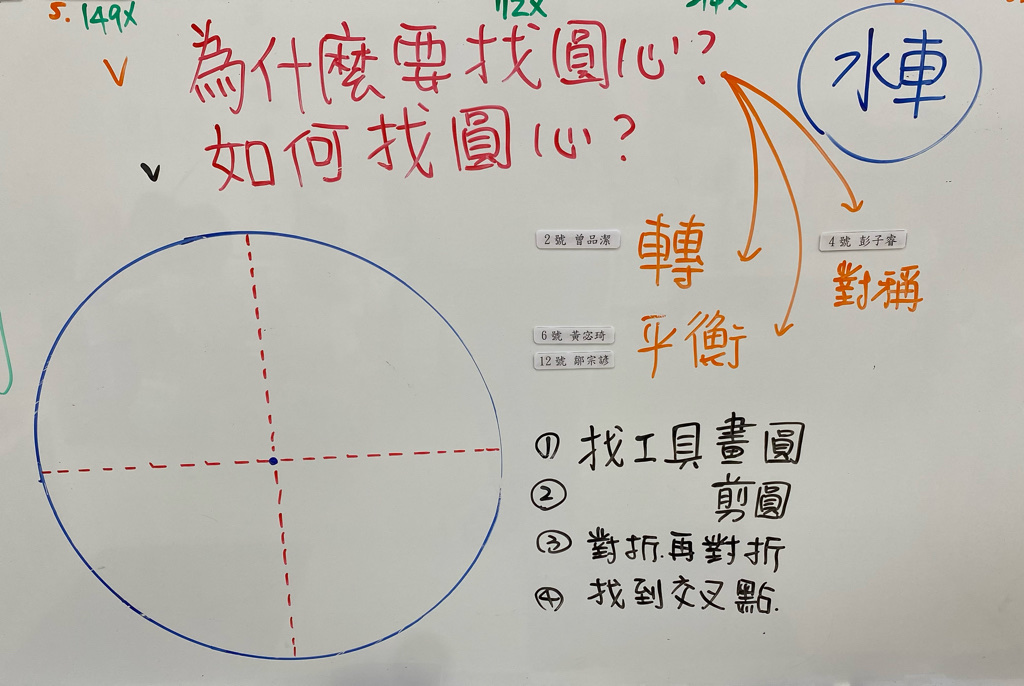 5. 149X
為什麼要找圓心?
如何找圓心?
水車
2號 曾品潔
轉
4號 彭子睿
對稱
6號 黃宓琦
12號 鄒宗諺
平衡
① 找工具畫圓
② 剪圓
③ 對折.再對折
④ 找到交叉點.